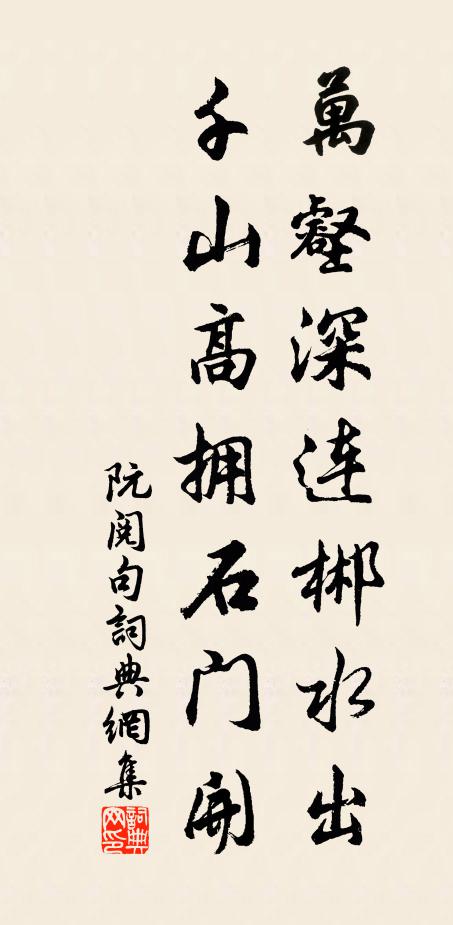 萬壑深连郴水出
千山高拥石门開
阮閱句詞典網集
詞典网印